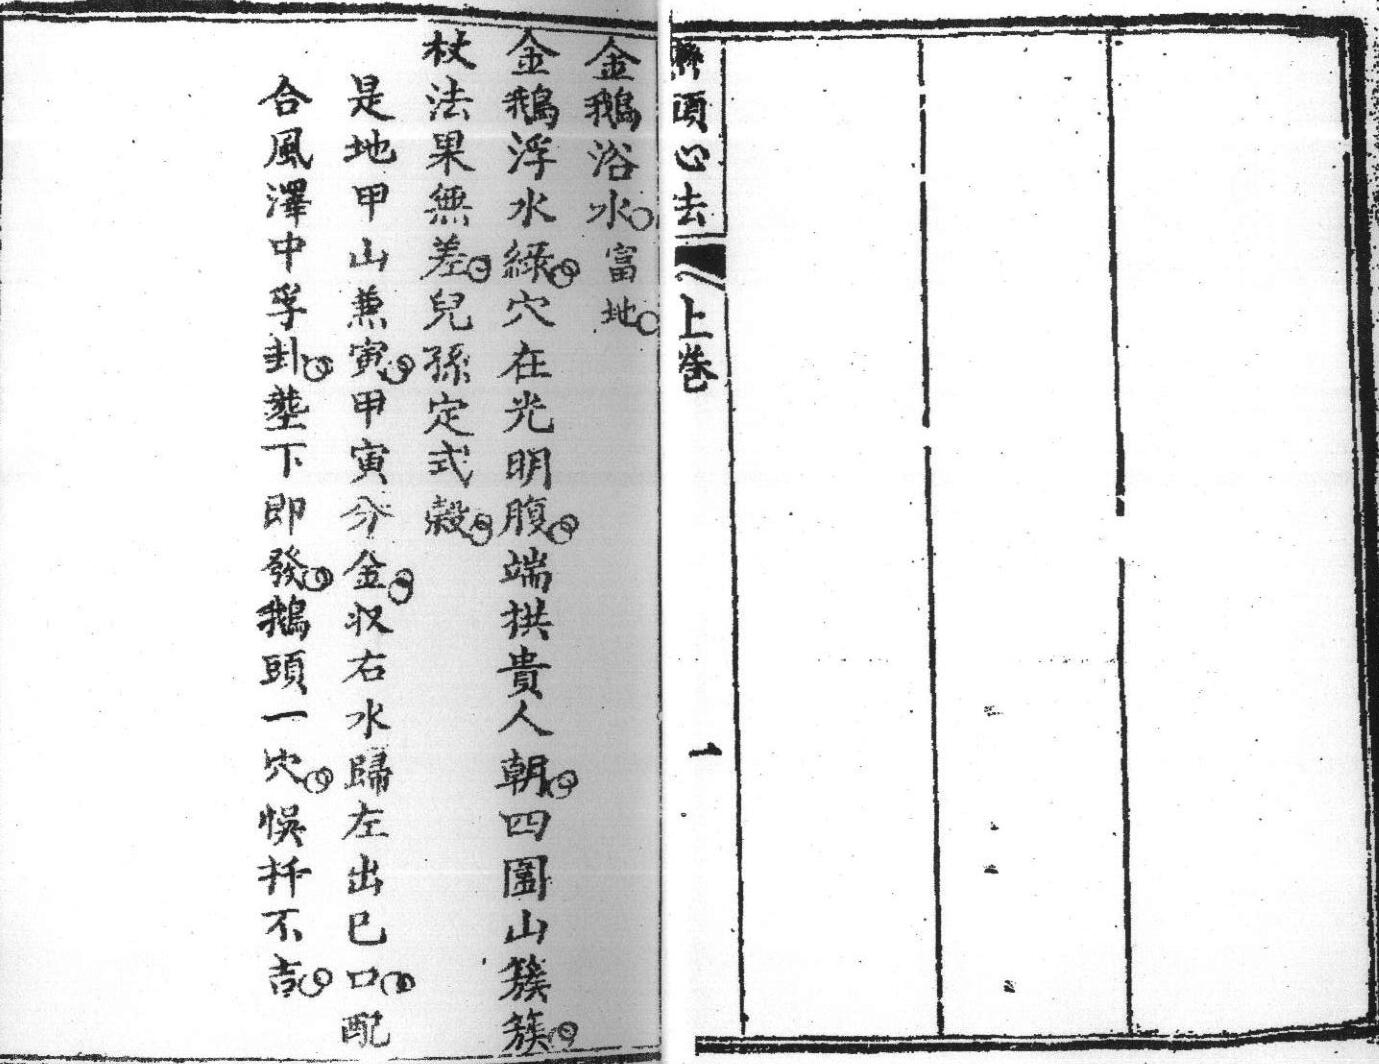 上卷
一
金鵝浴水富地
金鵝浮水綠穴在光明腹端拱貴人朝四圍山簇簇
杖法果無差兒孫定式穀
是地甲山兼寅甲寅分金収右水歸左出巳口配
合風澤中孚卦塟下即發鵝頭一穴悞扦不吉